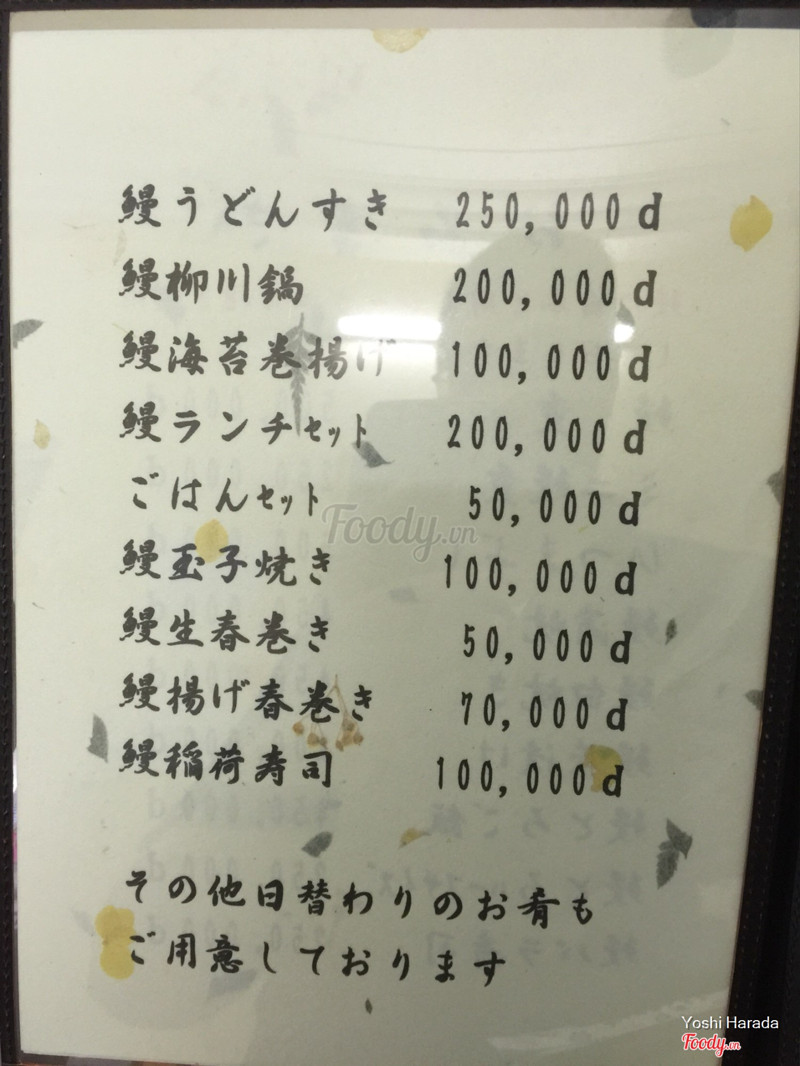 鰻うどんすき 250,000d
鰻柳川鍋 200,000d
鰻海苔巻揚げ 100,000d
鰻ランチセット 200,000d
ごはんセット 50,000d
鰻玉子焼き 100,000d
鰻生春巻き 50,000d
鰻揚げ春巻き 70,000d
鰻稲荷寿司 100,000d
その他日替わりのお肴も
ご用意しております
Foody.vn
Yoshi Harada
Foody.vn